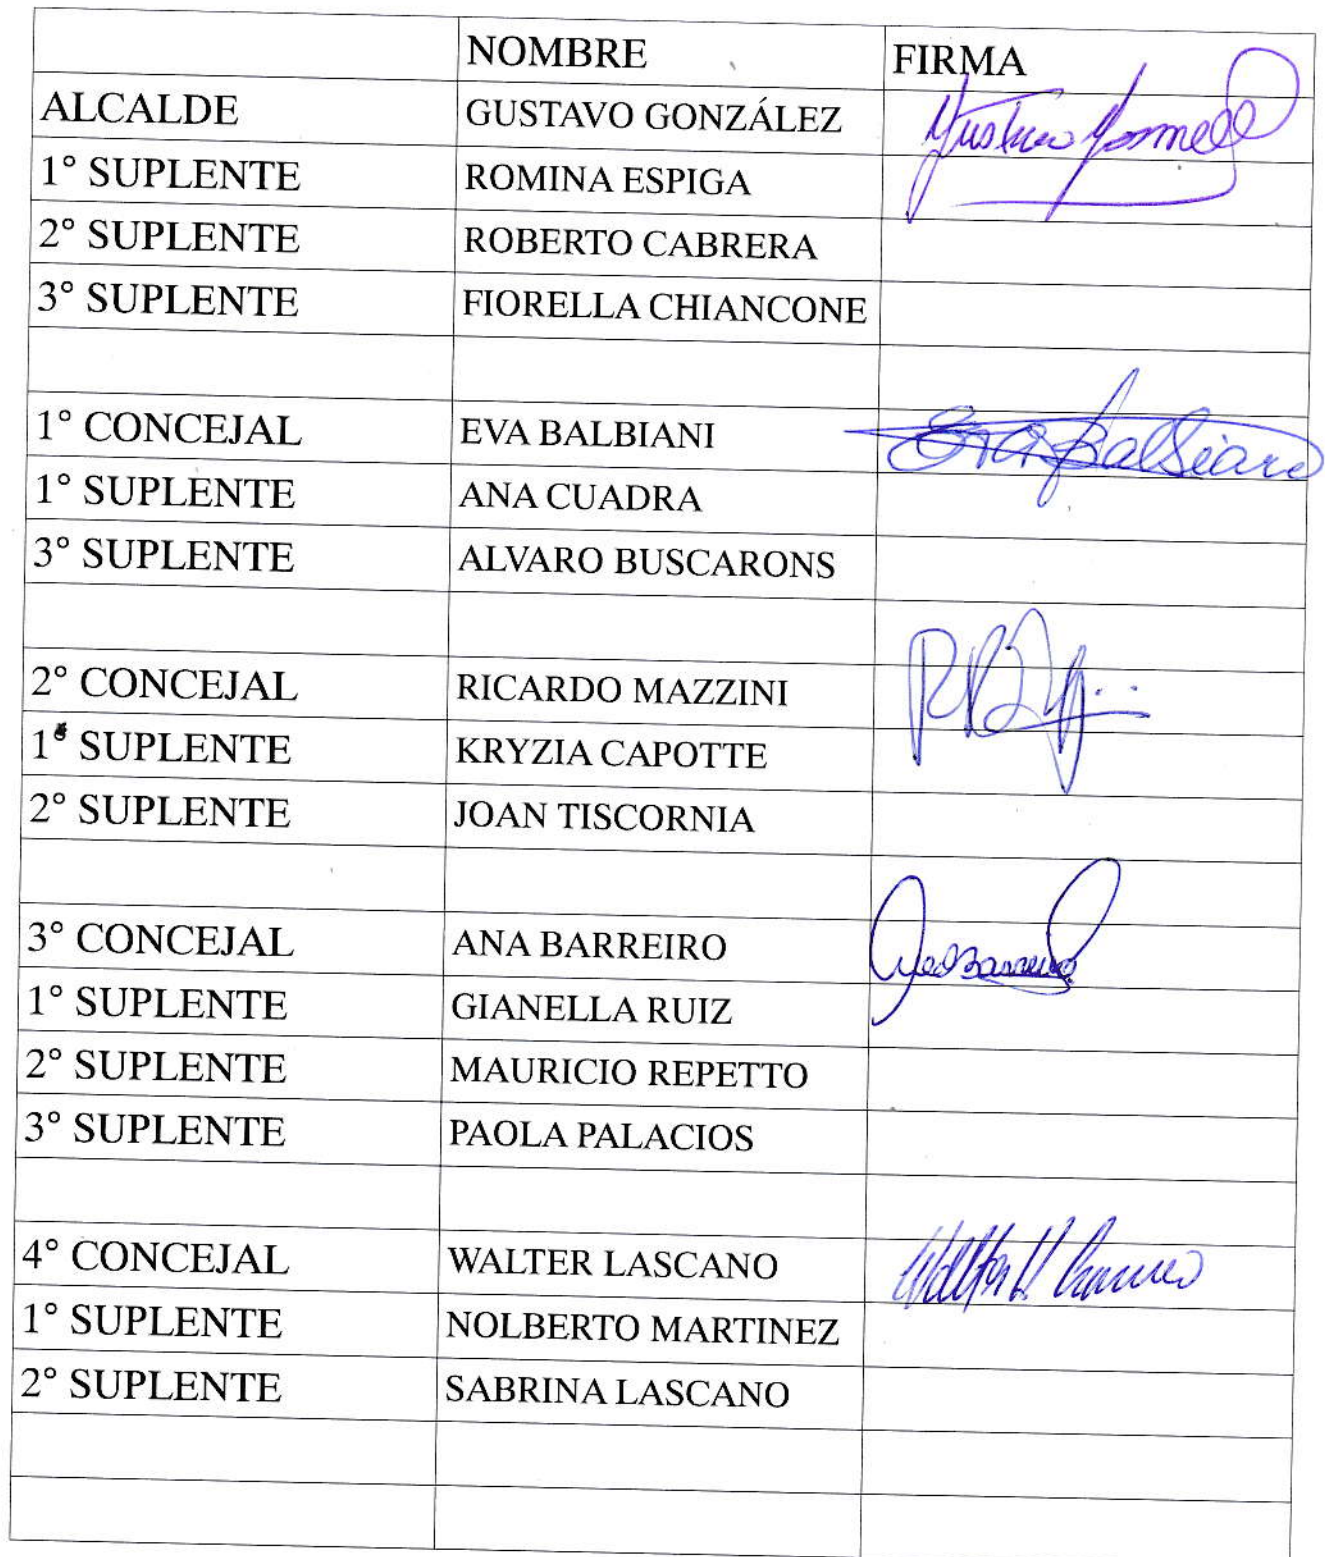 NOMBRE FIRMA
ALCALDE GUSTAVO GONZÁLEZ Gustavo Gonzalez
1° SUPLENTE ROMINA ESPIGA
2° SUPLENTE ROBERTO CABRERA
3° SUPLENTE FIORELLA CHIANCONE
1° CONCEJAL EVA BALBIANI Eva Balbiani
1° SUPLENTE ANA CUADRA
3° SUPLENTE ALVARO BUSCARONS
2° CONCEJAL RICARDO MAZZINI
1° SUPLENTE KRYZIA CAPOTTE
2° SUPLENTE JOAN TISCORNIA
3° CONCEJAL ANA BARREIRO Barreiro
1° SUPLENTE GIANELLA RUIZ
2° SUPLENTE MAURICIO REPETTO
3° SUPLENTE PAOLA PALACIOS
4° CONCEJAL WALTER LASCANO Walter
1° SUPLENTE NOLBERTO MARTINEZ
2° SUPLENTE SABRINA LASCANO